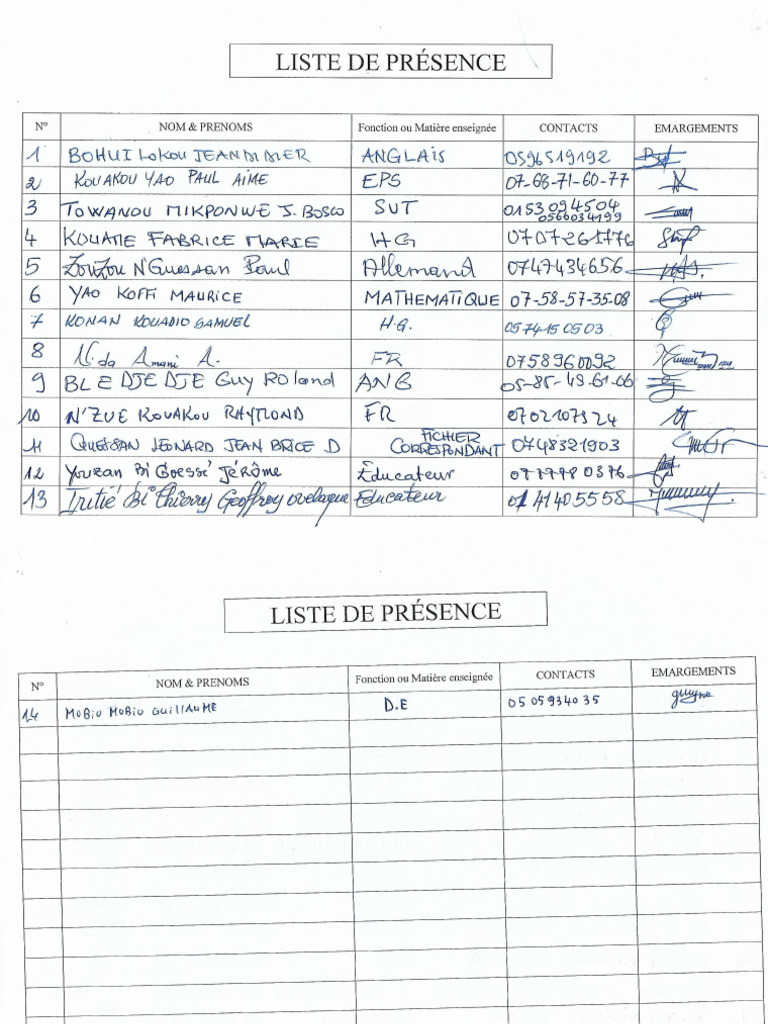 LISTE DE PRÉSENCE
N° NOM & PRENOMS Fonction ou Matière enseignée CONTACTS EMARGEMENTS
1 BOHUI LOKOU JEAN DIDIER ANGLAIS 0596519192
2 KOUAKOU YAO PAUL AIME EPS 07-68-71-60-77
3 TOWANOU MIKPONWE J. BOSCO SVT 0153094504
0566034199
4 KOUAME FABRICE MARIE HG
5 ZouZou N'Guessan Paul Allemand 0747434656
6 YAO KOFFI MAURICE MATHEMATIQUE 07-58-57-35-08
7 KONAN KOUADIO SAMUEL H.G. 0574150503
8 N'da Amani A. FR 0758960092
9 BLE DJE DJE Guy Roland ANG 05-85-49-61-06
10 N'ZUE KOUAKOU RAYMOND FR 0702107324
11 GUESSAN LEONARD JEAN BRICE D FICHIER
CORRESPONDANT 0748321903
12 Youzan Bi Goessé Jérôme Éducateur
13 Iritié Bi Thierry Geoffroy Educateur 0141405558
LISTE DE PRÉSENCE
N° NOM & PRENOMS Fonction ou Matière enseignée CONTACTS EMARGEMENTS
14 MOBIO MOBIO GUILLAUME D.E 0505934035